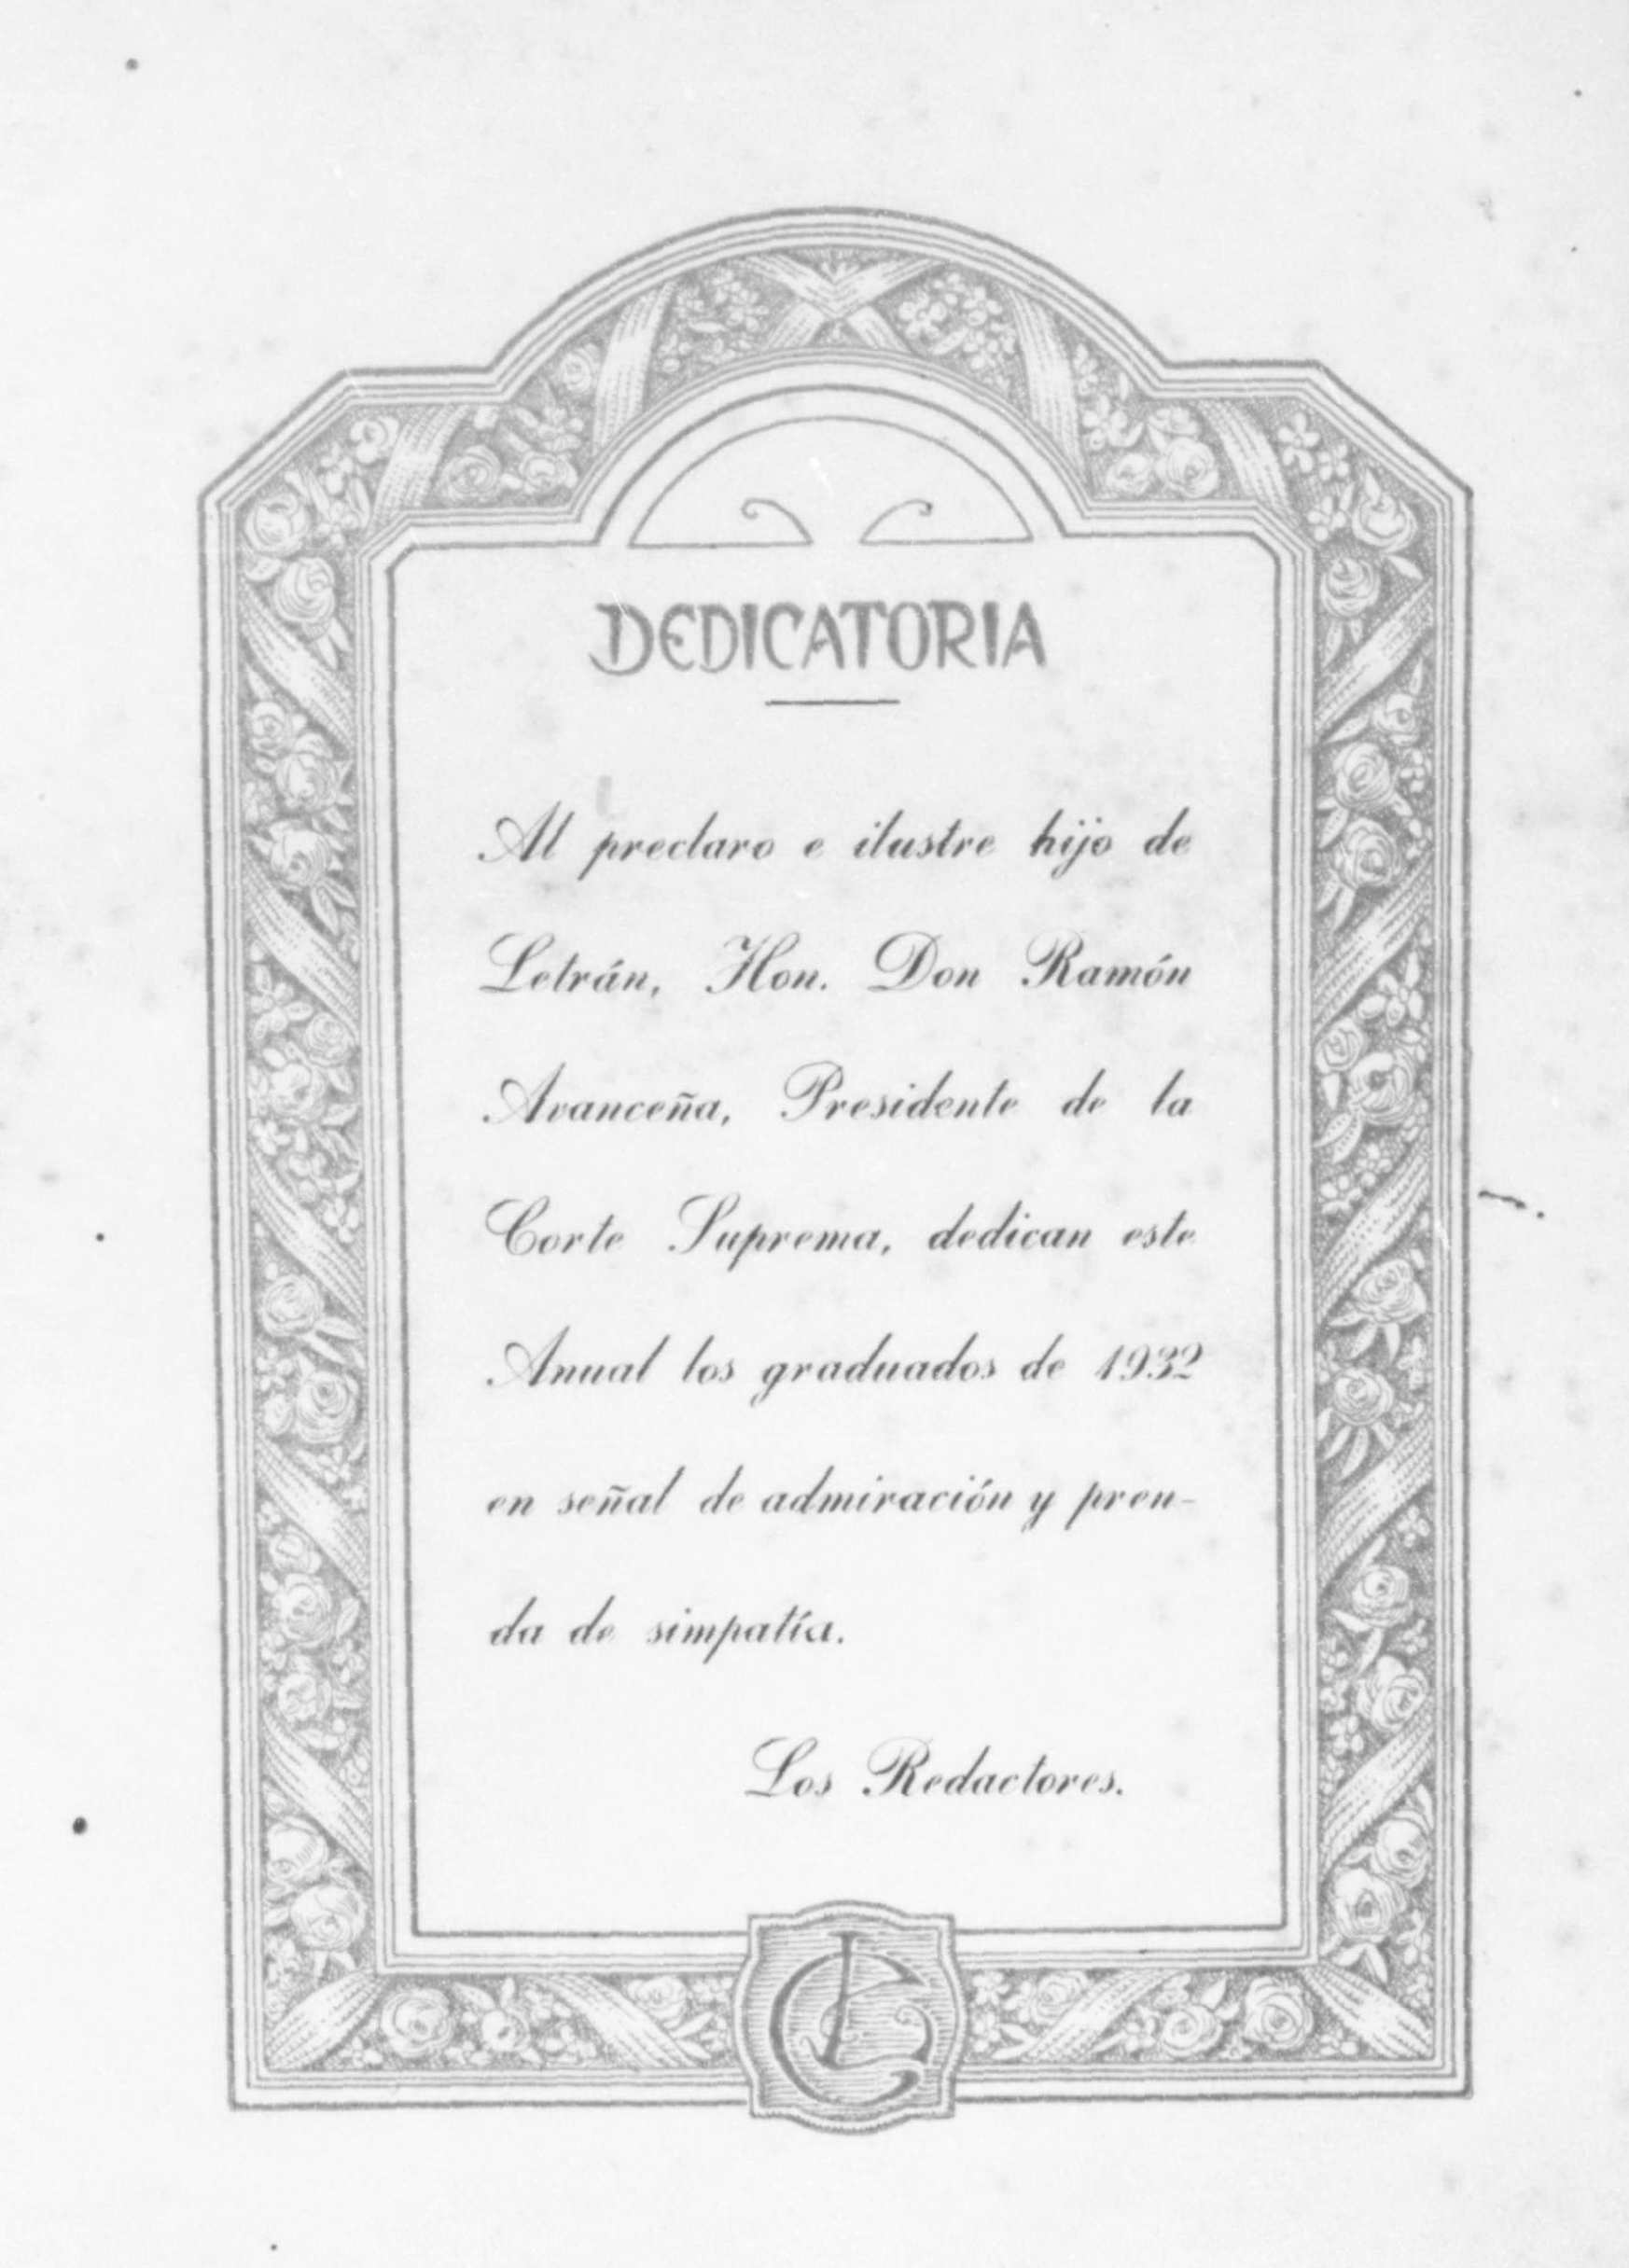 DEDICATORIA
Al preclaro e ilustre hijo de
Letrán, Hon. Don Ramón
Avanceña, Presidente de la
Corte Suprema, dedican este
Anual los graduados de 1932
en señal de admiración y pren-
da de simpatía.
Los Redactores.